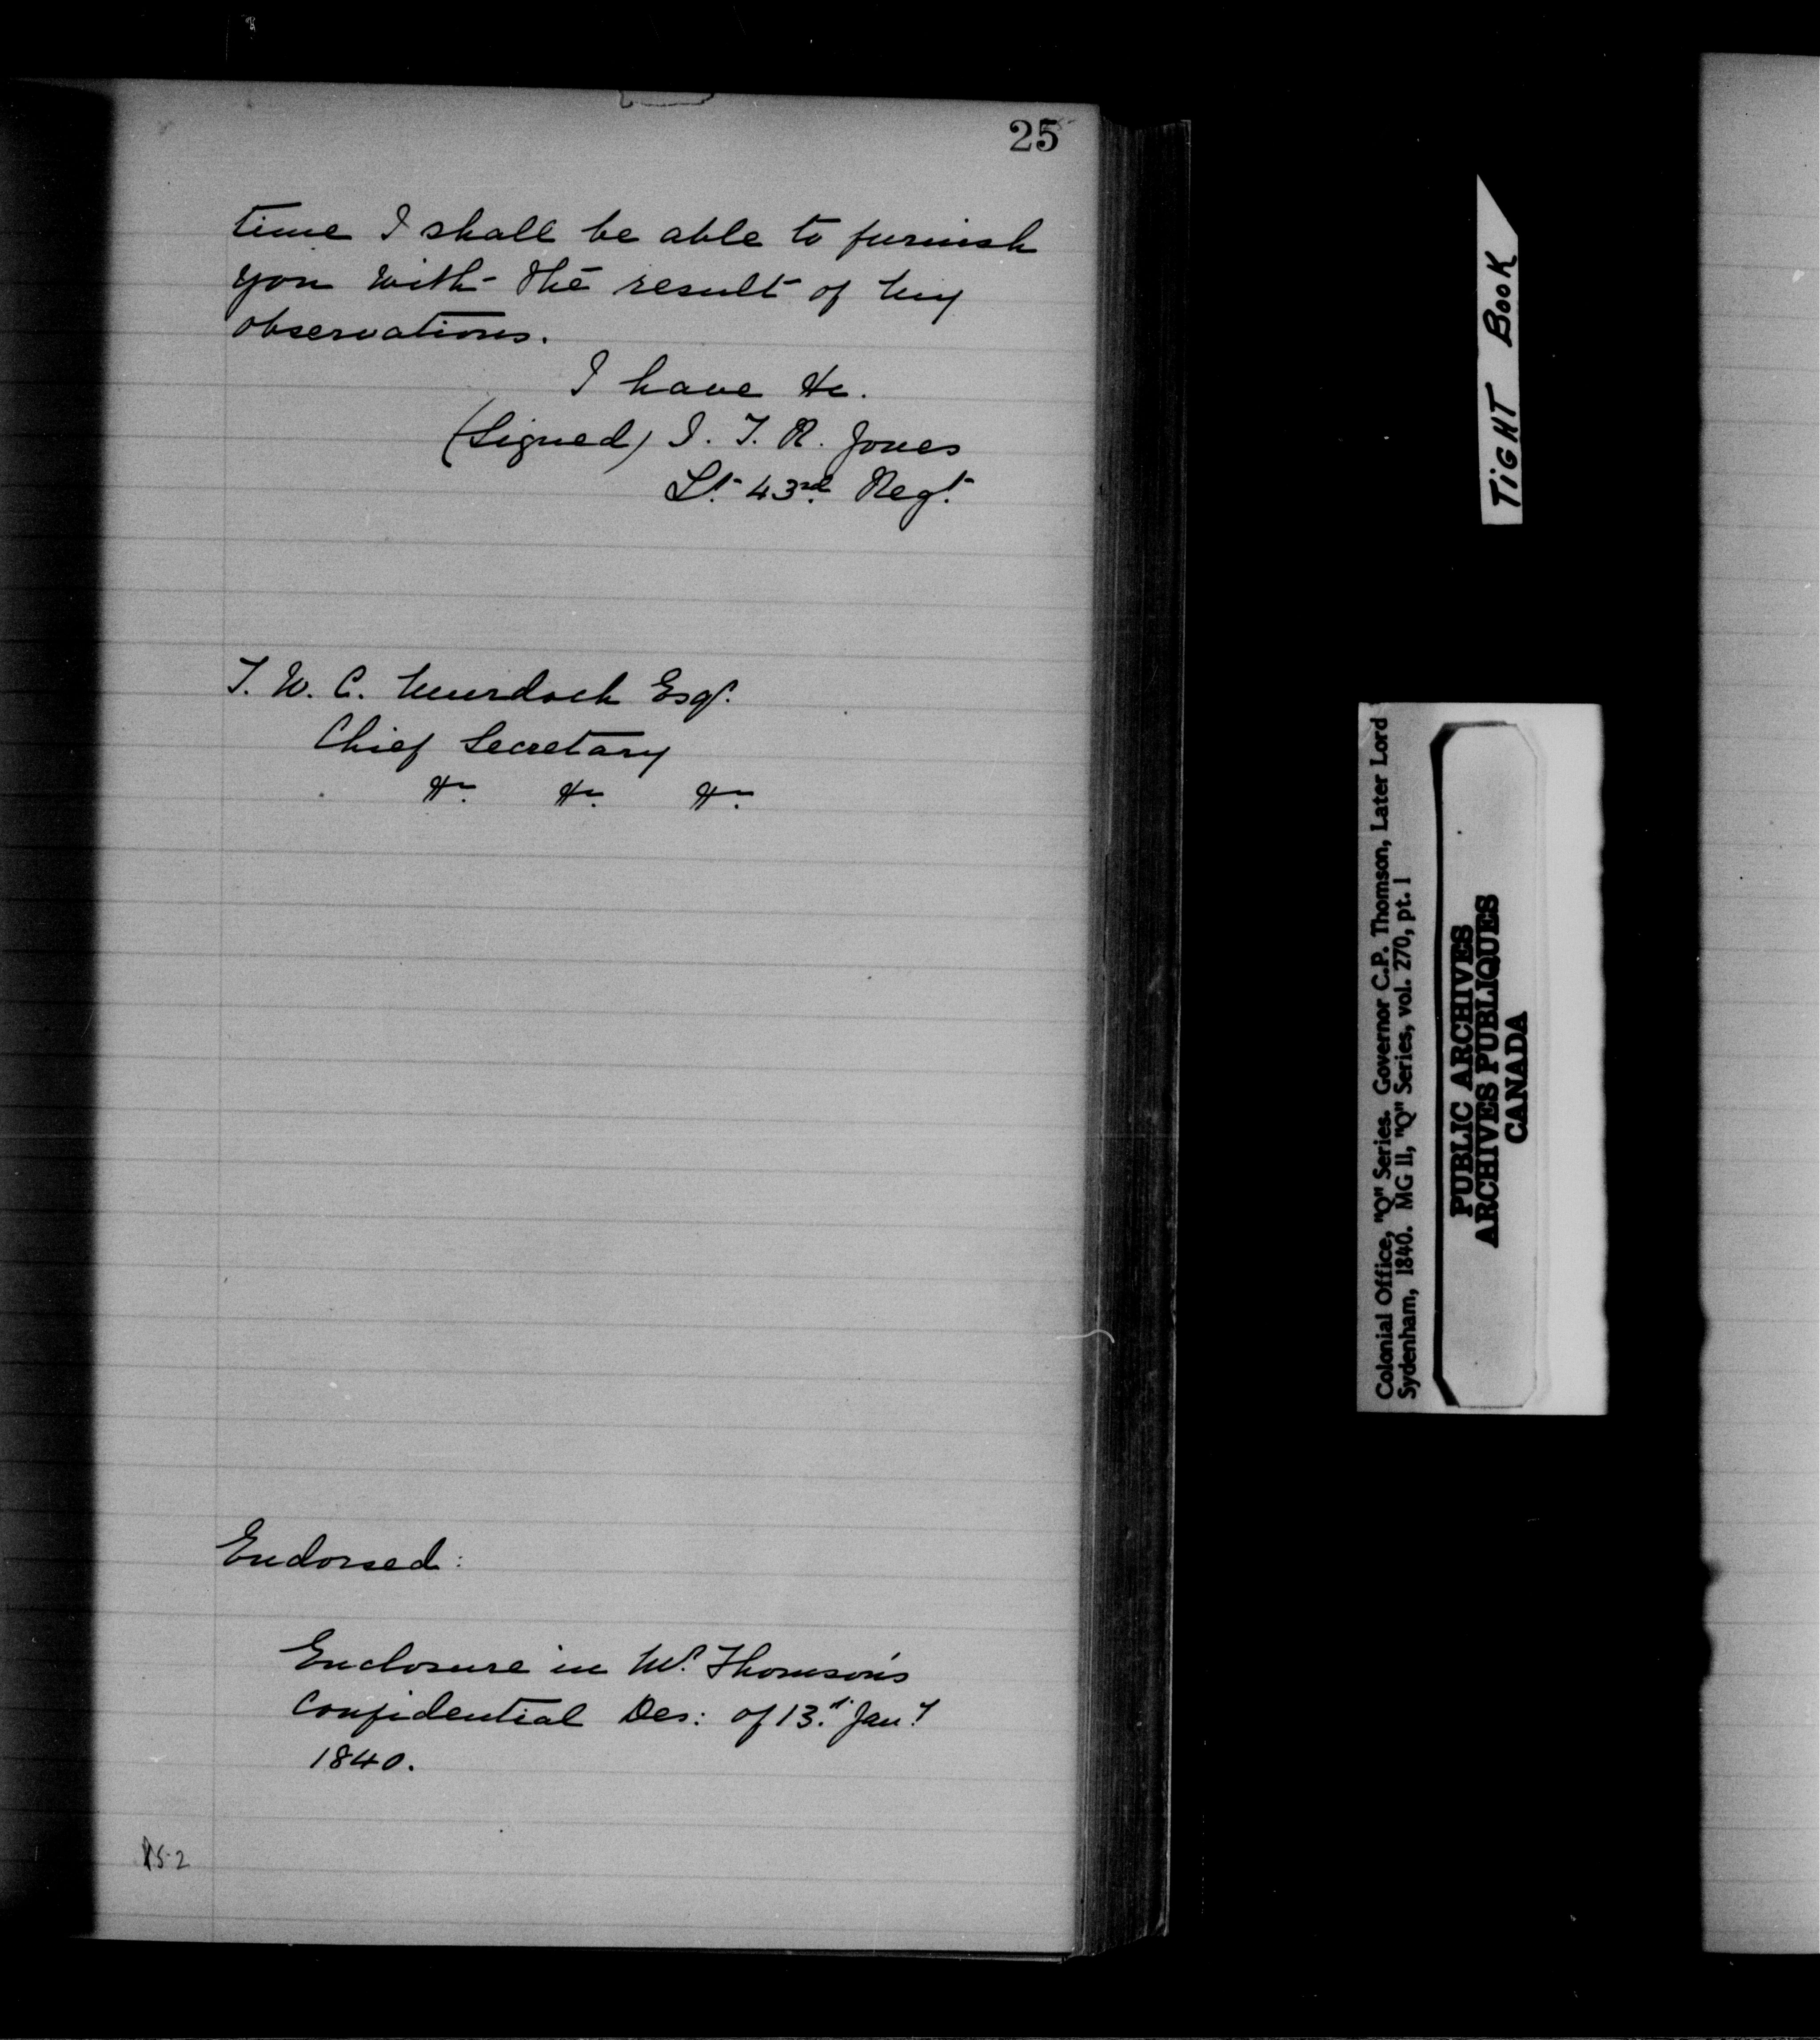 25
time I shall be able to furnish
you with the result of my
observations.
I have &c.
(Signed) I. T. R. Jones
Lt. 43rd Regt.
T. W. C. Murdoch Esqr.
Chief Secretary
&c. &c. &c.
Endorsed:
Enclosure in Mr. Thomson's
Confidential Des: of 13.th Jan.y
1840.
TIGHT BOOK
Colonial Office, "Q" Series. Governor C.P. Thomson, Later Lord
Sydenham, 1840. MG 11, "Q" Series, vol. 270, pt. 1
PUBLIC ARCHIVES
ARCHIVES PUBLIQUES
CANADA